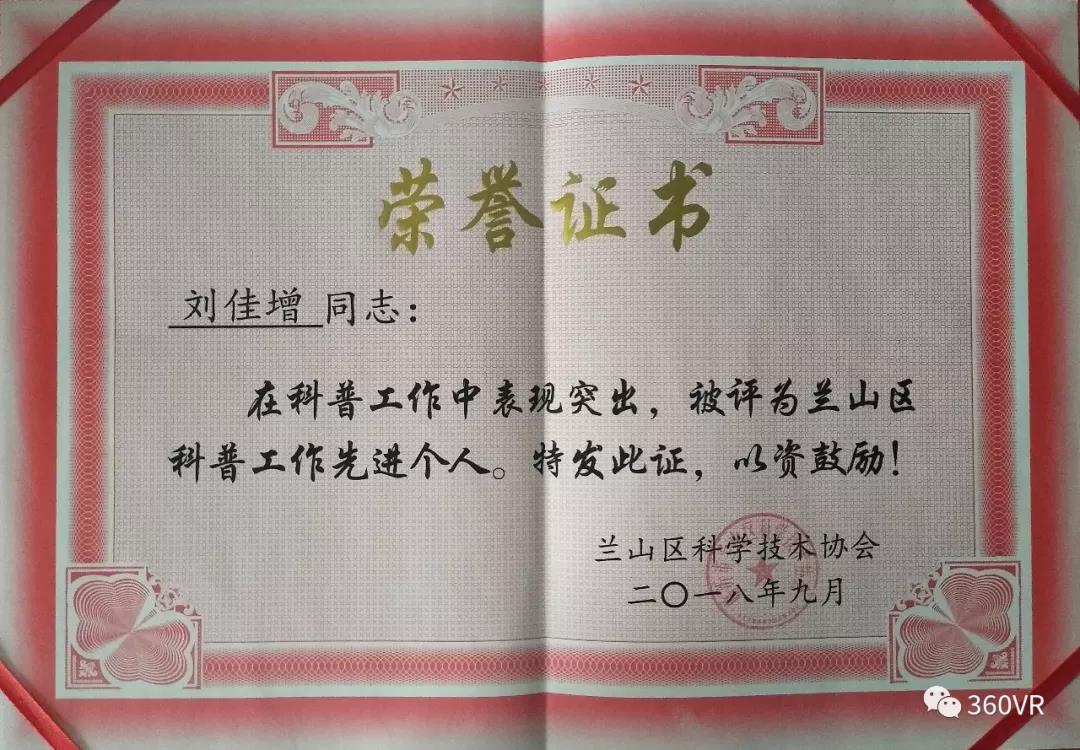 荣誉证书
刘佳增 同志：
在科普工作中表现突出，被评为兰山区
科普工作先进个人。特发此证，以资鼓励！
兰山区科学技术协会
二〇一八年九月
360VR